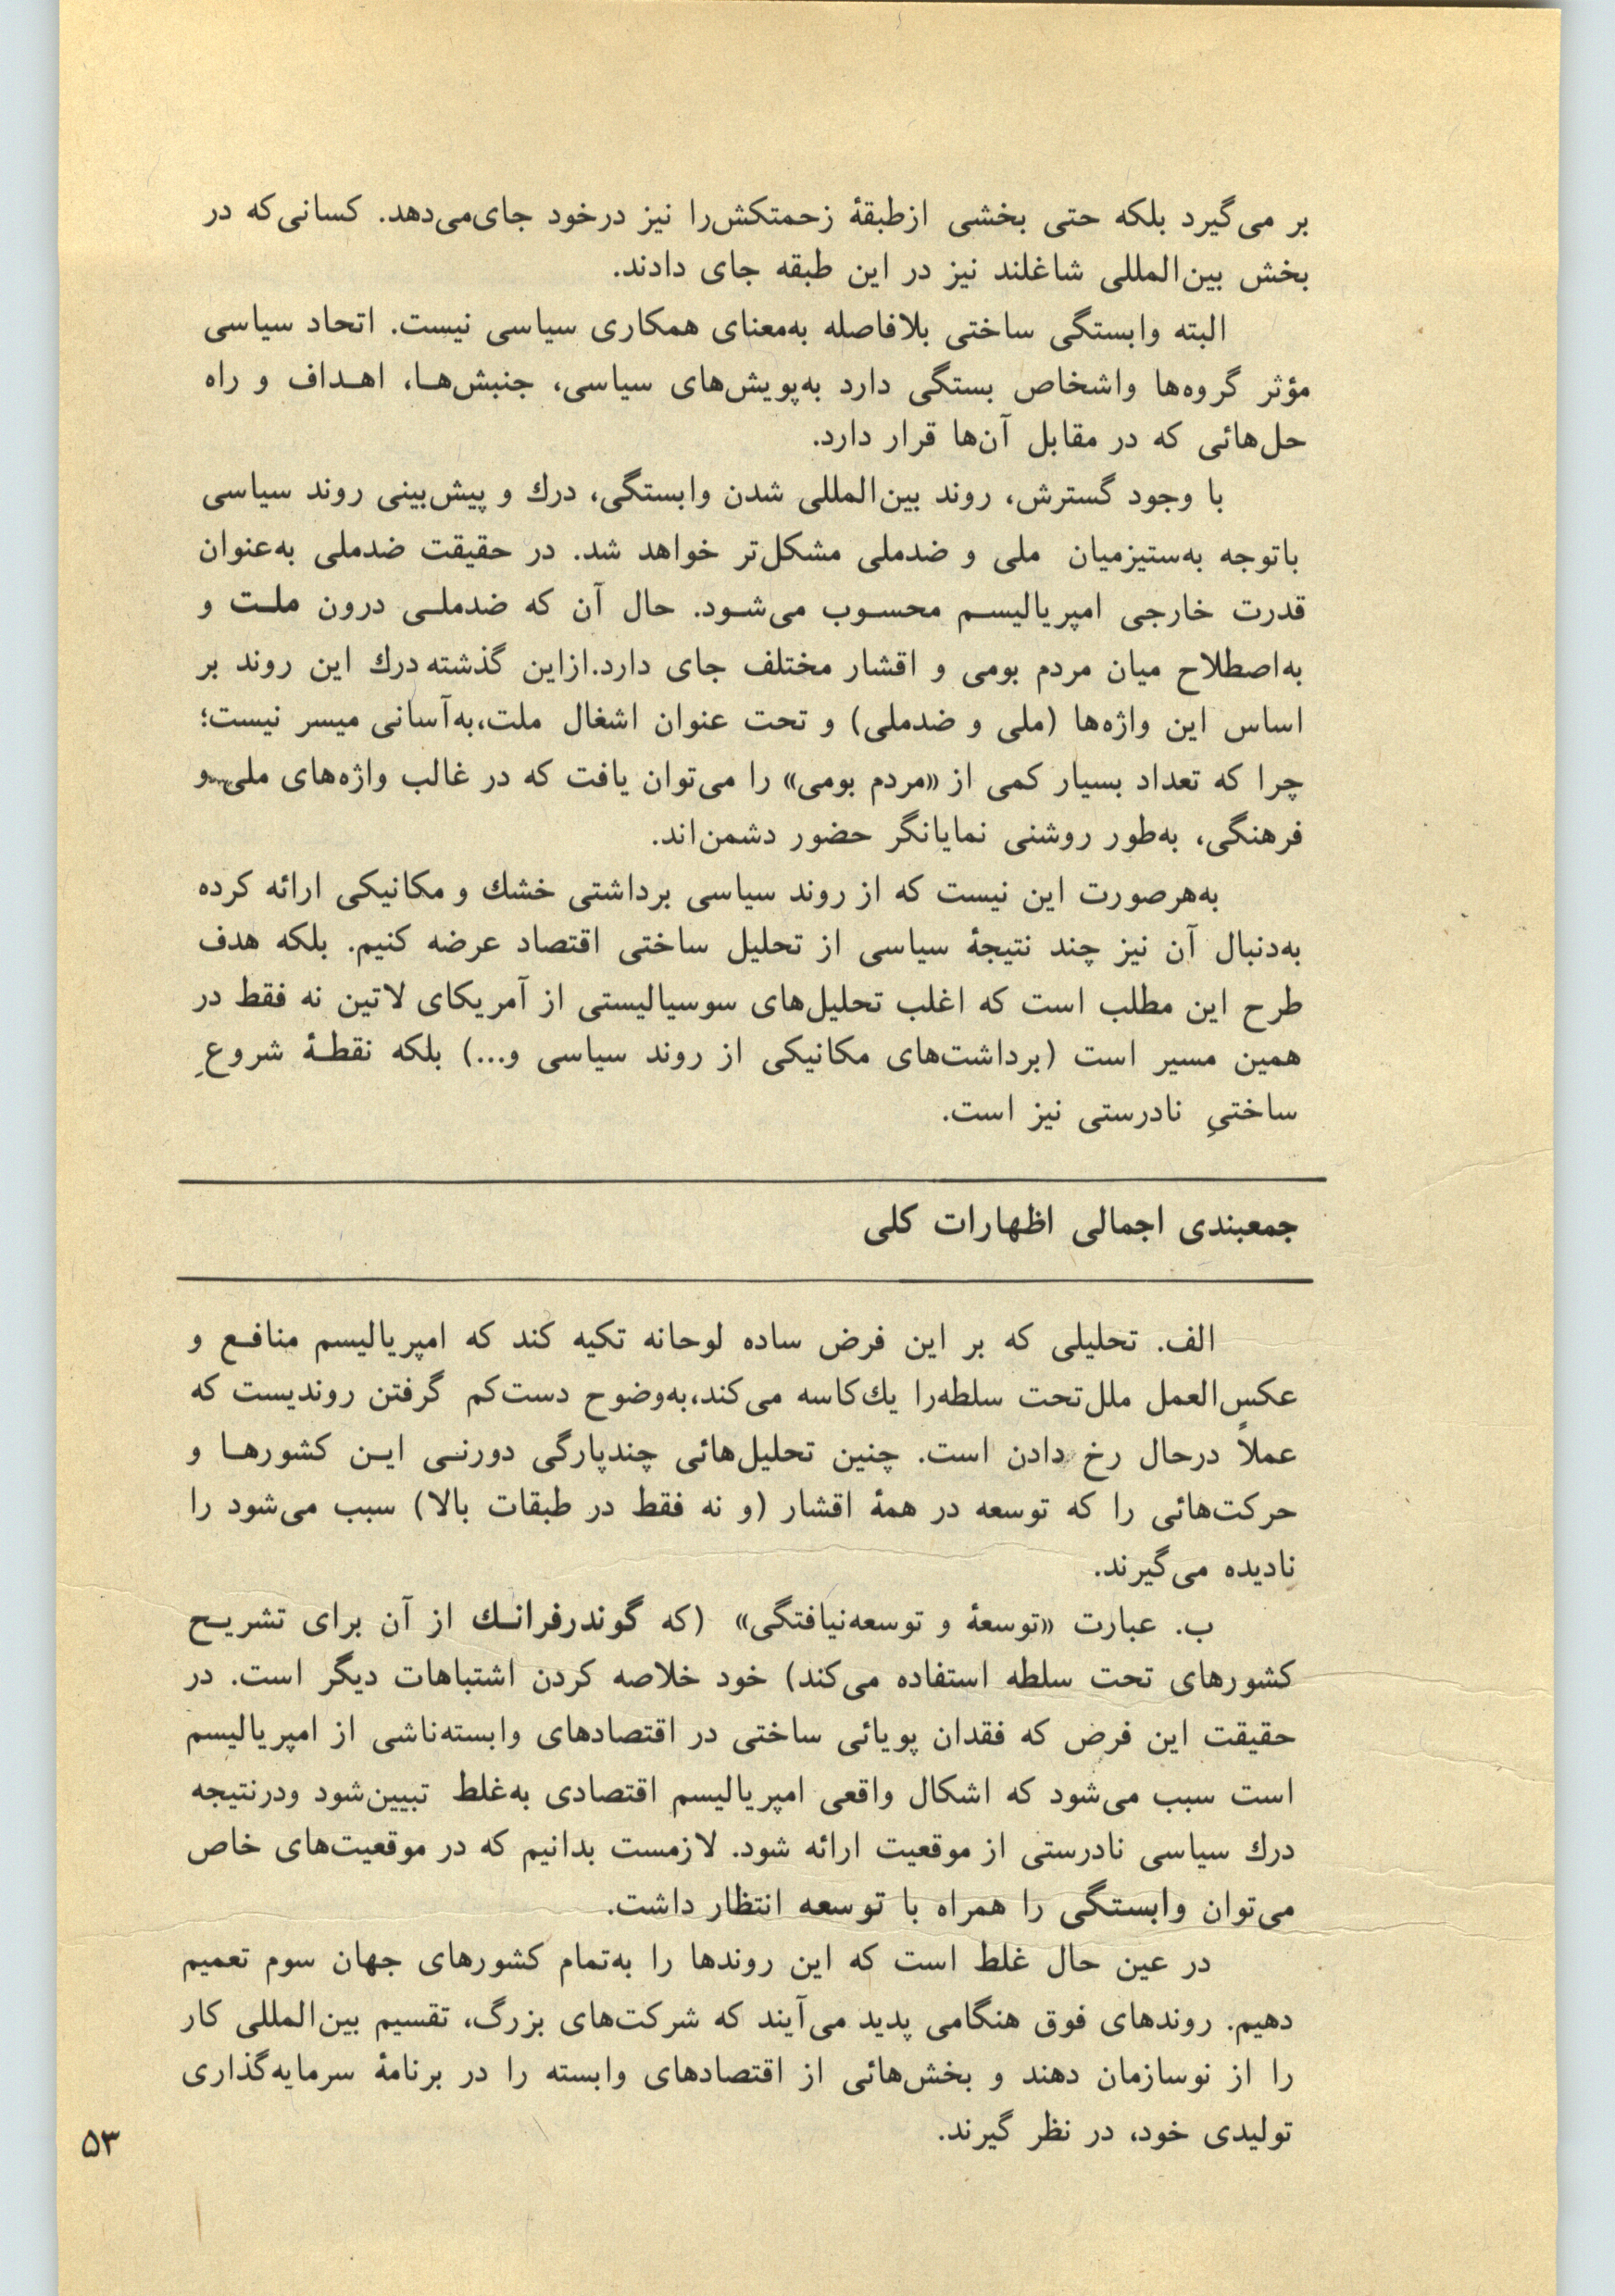 بر می‌گیرد بلکه حتی بخشی ازطبقهٔ زحمتکش‌را نیز درخود جای‌می‌دهد. کسانی‌که در
بخش بین‌المللی شاغلند نیز در این طبقه جای دادند.
البته وابستگی ساختی بلافاصله به‌معنای همکاری سیاسی نیست. اتحاد سیاسی
مؤثر گروه‌ها واشخاص بستگی دارد به‌پویش‌های سیاسی، جنبش‌هـا، اهـداف و راه
حل‌هائی که در مقابل آن‌ها قرار دارد.
با وجود گسترش، روند بین‌المللی شدن وابستگی، درك و پیش‌بینی روند سیاسی
باتوجه به‌ستیزمیان ملی و ضدملی مشکل‌تر خواهد شد. در حقیقت ضدملی به‌عنوان
قدرت خارجی امپریالیسـم محسـوب می‌شـود. حال آن که ضدملـی درون ملـت و
به‌اصطلاح میان مردم بومی و اقشار مختلف جای دارد.ازاین گذشته درك این روند بر
اساس این واژه‌ها (ملی و ضدملی) و تحت عنوان اشغال ملت،به‌آسانی میسر نیست؛
چرا که تعداد بسیار کمی از «مردم بومی» را می‌توان یافت که در غالب واژه‌های ملی و
فرهنگی، به‌طور روشنی نمایانگر حضور دشمن‌اند.
به‌هرصورت این نیست که از روند سیاسی برداشتی خشك و مکانیکی ارائه کرده
به‌دنبال آن نیز چند نتیجهٔ سیاسی از تحلیل ساختی اقتصاد عرضه کنیم. بلکه هدف
طرح این مطلب است که اغلب تحلیل‌های سوسیالیستی از آمریکای لاتین نه فقط در
همین مسیر است (برداشت‌های مکانیکی از روند سیاسی و...) بلکه نقطـهٔ شروعِ
ساختیِ نادرستی نیز است.
جمعبندی اجمالی اظهارات کلی
الف. تحلیلی که بر این فرض ساده لوحانه تکیه کند که امپریالیسم منافـع و
عکس‌العمل ملل‌تحت سلطه‌را یك‌کاسه می‌کند،به‌وضوح دست‌کم گرفتن روندیست که
عملاً درحال رخ دادن است. چنین تحلیل‌هائی چندپارگی دورنـی ایـن کشورهـا و
حرکت‌هائی را که توسعه در همهٔ اقشار (و نه فقط در طبقات بالا) سبب می‌شود را
نادیده می‌گیرند.
ب. عبارت «توسعهٔ و توسعه‌نیافتگی» (که گوندرفرانـك از آن برای تشریـح
کشورهای تحت سلطه استفاده می‌کند) خود خلاصه کردن اشتباهات دیگر است. در
حقیقت این فرض که فقدان پویائی ساختی در اقتصادهای وابسته‌ناشی از امپریالیسم
است سبب می‌شود که اشکال واقعی امپریالیسم اقتصادی به‌غلط تبیین‌شود ودرنتیجه
درك سیاسی نادرستی از موقعیت ارائه شود. لازمست بدانیم که در موقعیت‌های خاص
می‌توان وابستگی را همراه با توسعه انتظار داشت.
در عین حال غلط است که این روندها را به‌تمام کشورهای جهان سوم تعمیم
دهیم. روندهای فوق هنگامی پدید می‌آیند که شرکت‌های بزرگ، تقسیم بین‌المللی کار
را از نوسازمان دهند و بخش‌هائی از اقتصادهای وابسته را در برنامهٔ سرمایه‌گذاری
تولیدی خود، در نظر گیرند.
۵۳